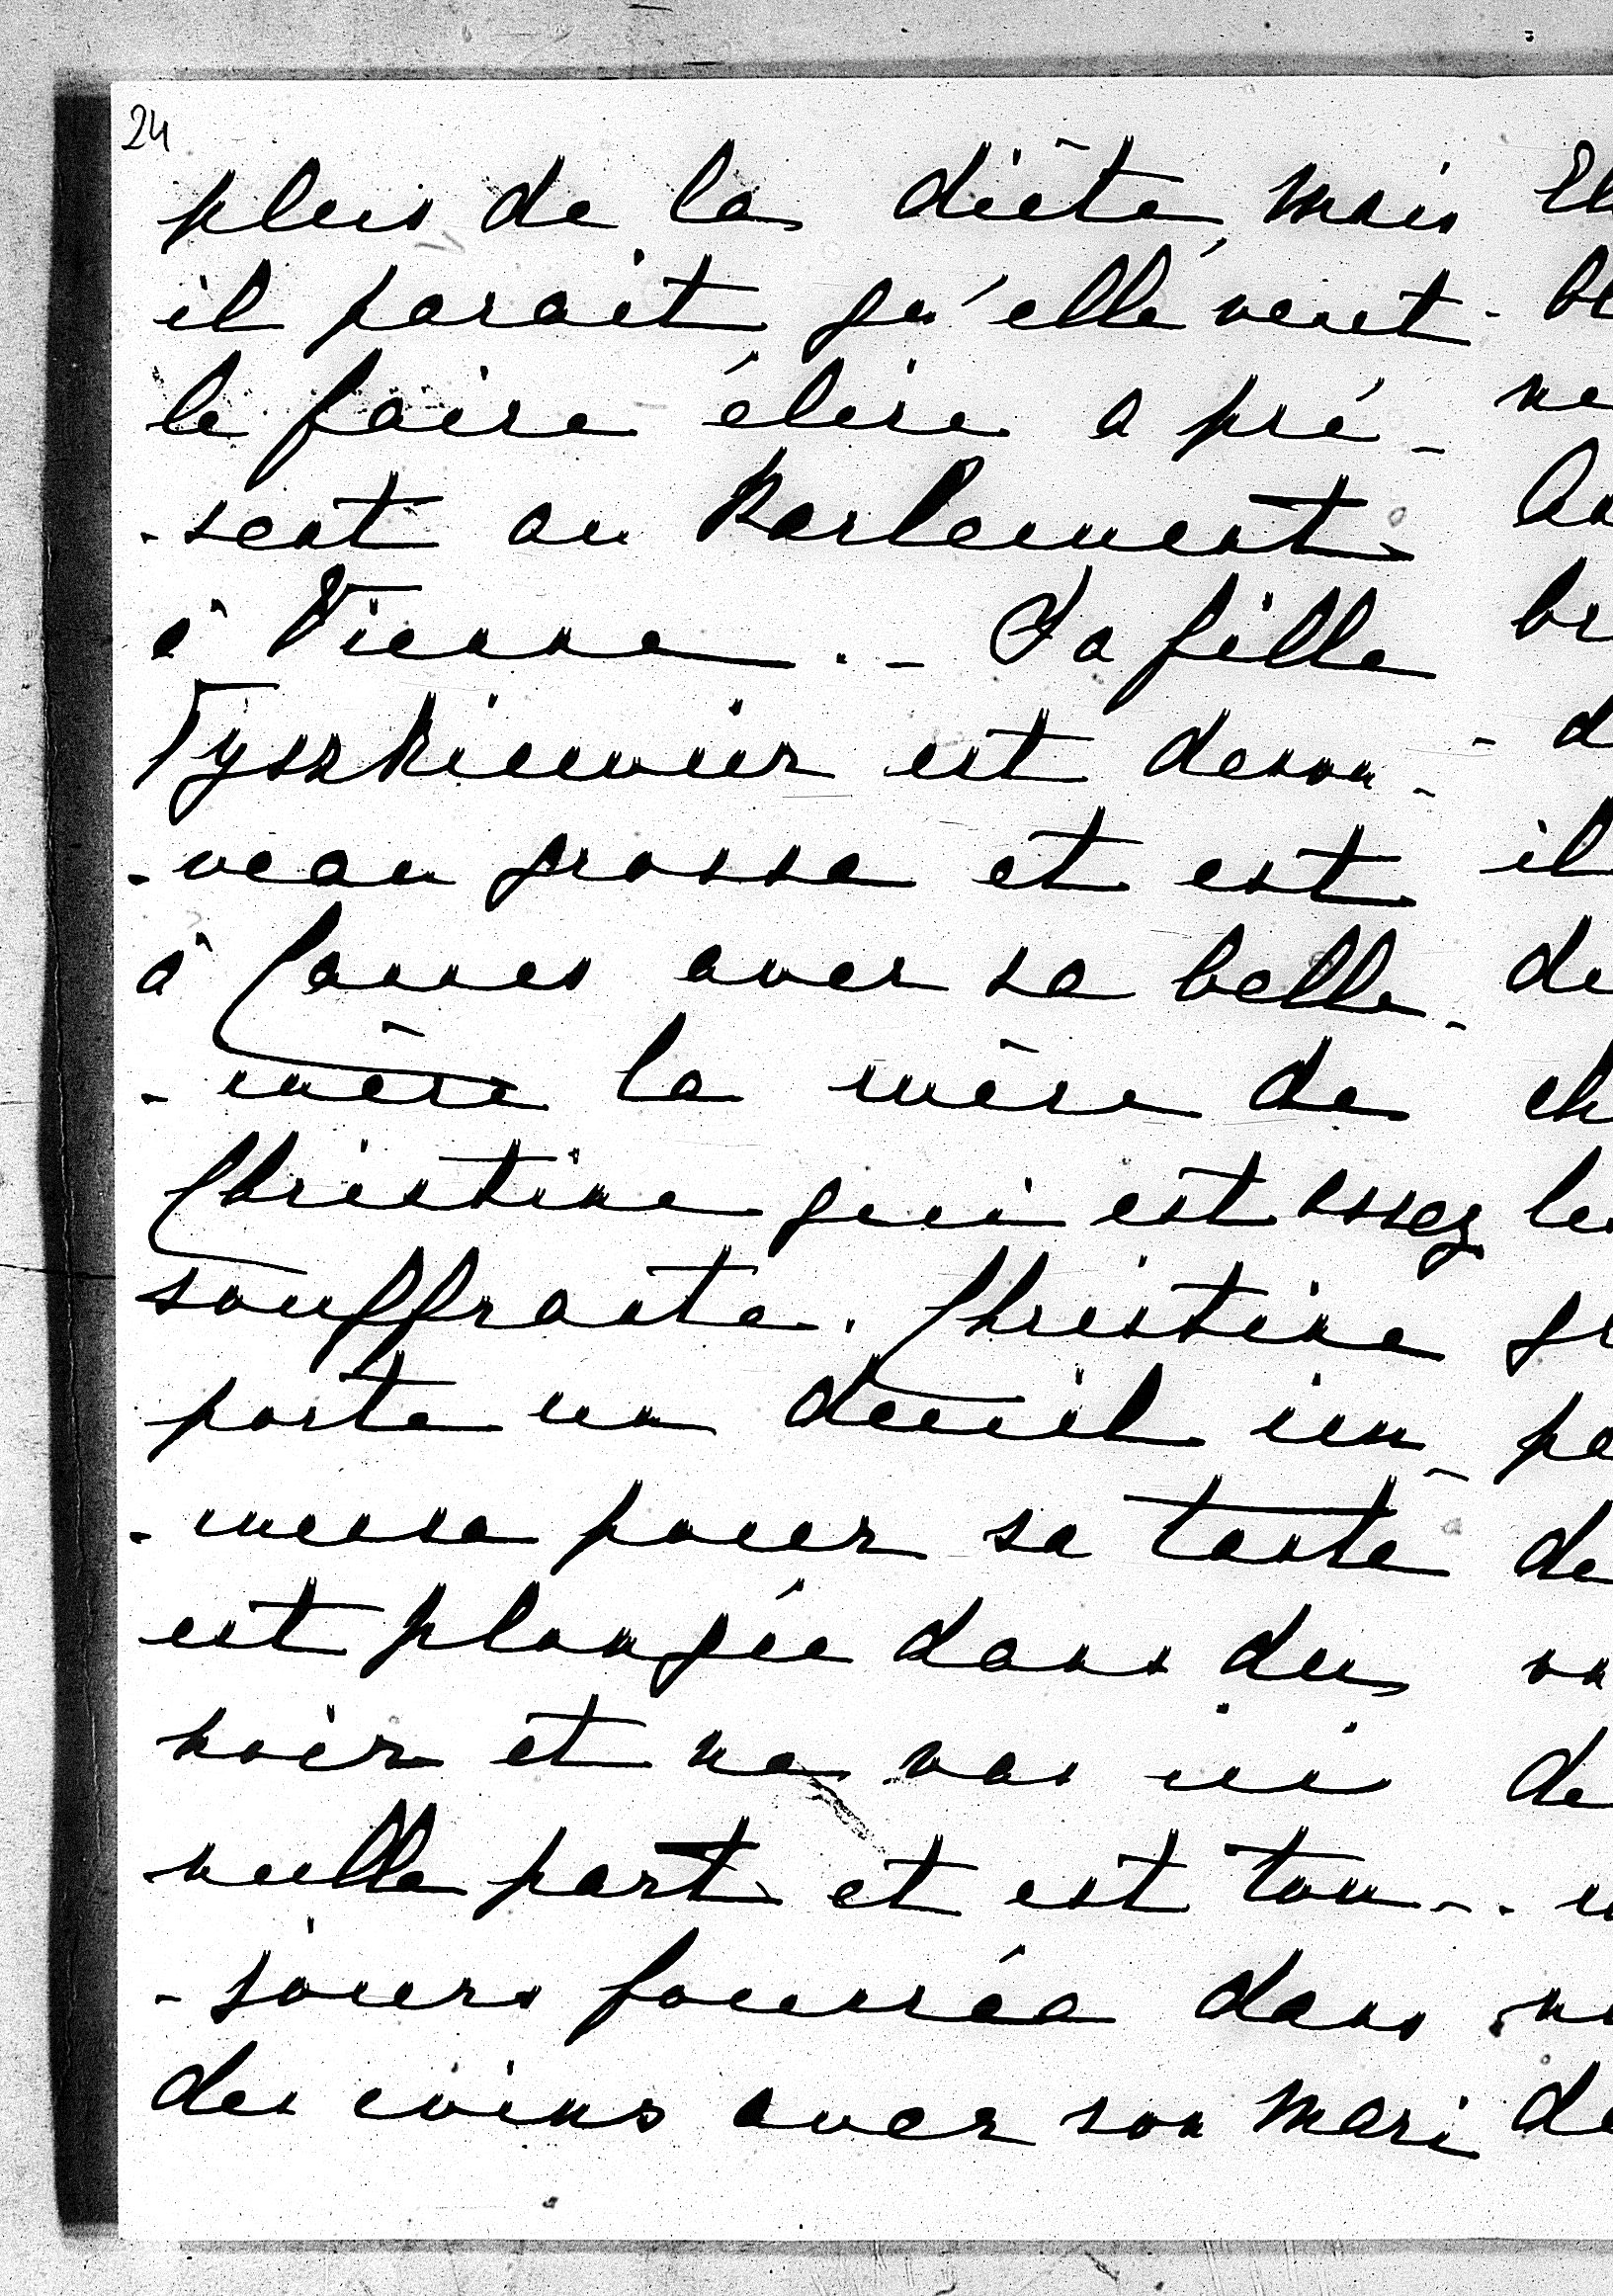 24
plus de la diète, mais
il parait qu'elle veut
le faire élire a pré-
-sent au Parlement
à Vienne. - Sa fille
Tyszkiewicz est denou-
-veau grosse et est
à Cannes avec sa belle-
-mère la mère de
Christine qui est assez
souffrante. Christine
porte un deuil im-
-mense pour sa tante
est plongée dans du
noir et ne vas ici
nulle part et est tou-
-jours fourrée dans
des coins avec son mari